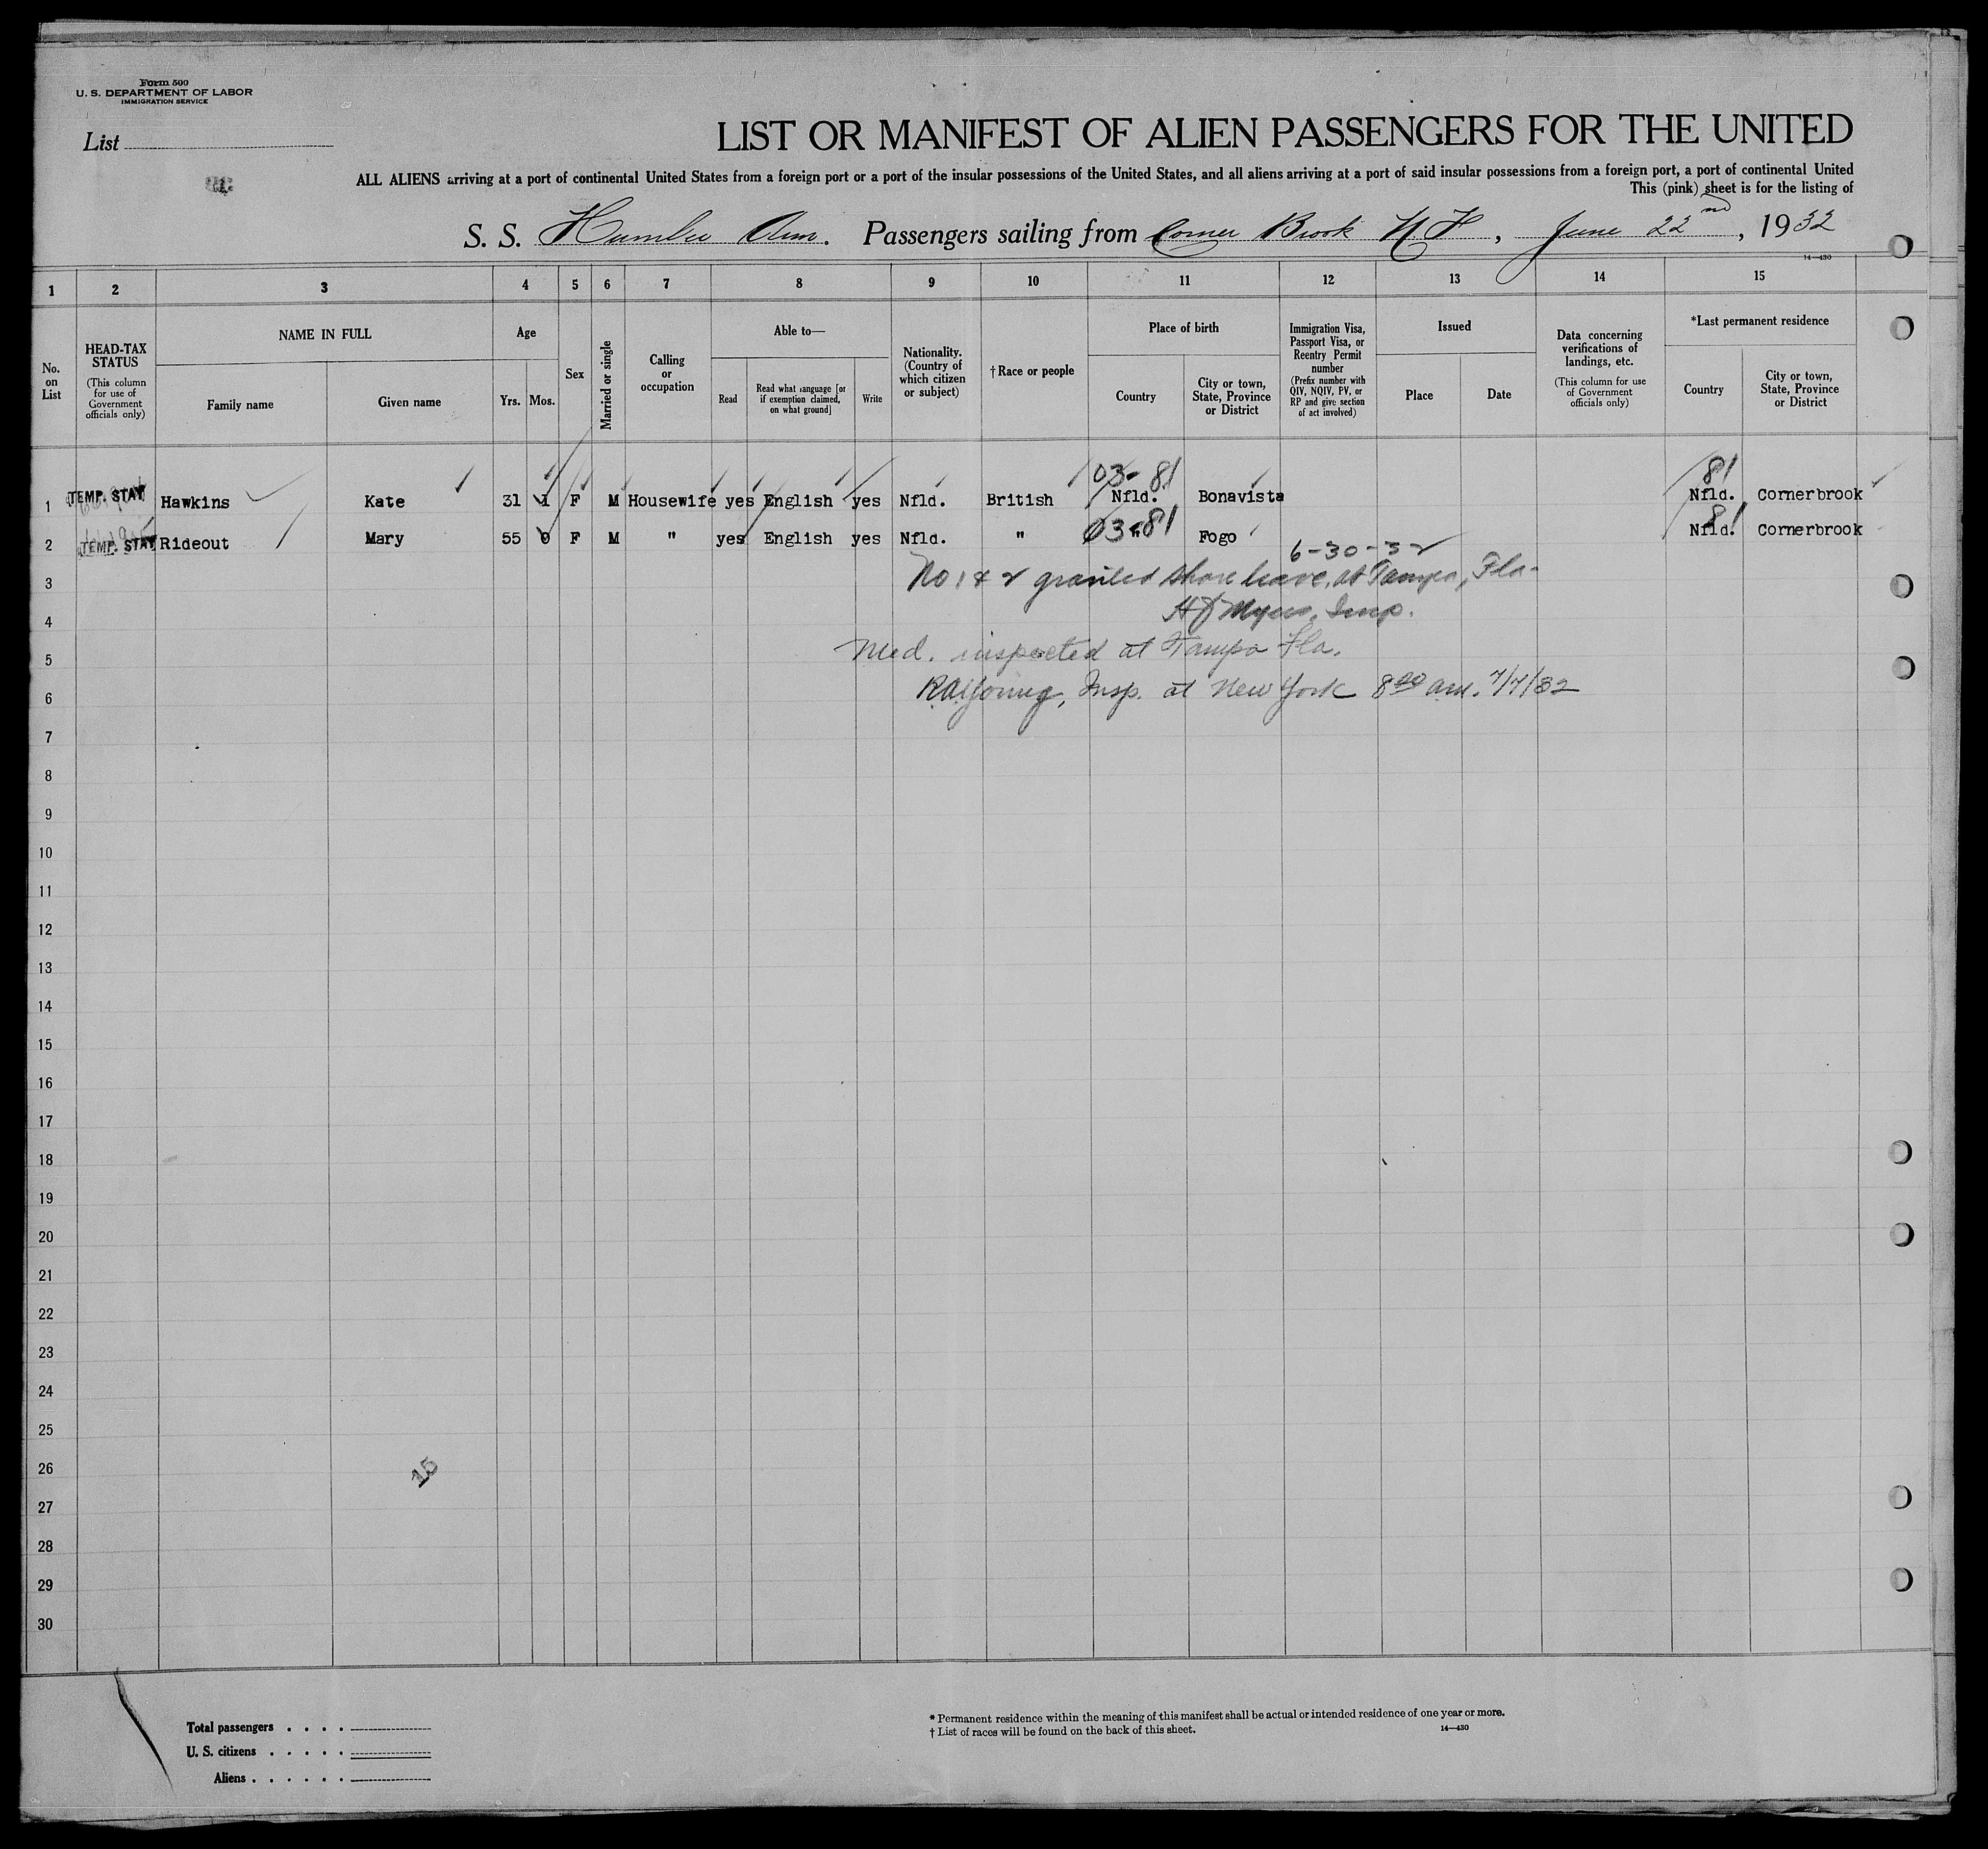 Form 500
U. S. DEPARTMENT OF LABOR
IMMIGRATION SERVICE
List
LIST OR MANIFEST OF ALIEN PASSENGERS FOR THE UNITED
ALL ALIENS arriving at a port of continental United States from a foreign port or a port of the insular possessions of the United States, and all aliens arriving at a port of said insular possessions from a foreign port, a port of continental United
This (pink) sheet is for the listing of
S. S. Humber Arm. Passengers sailing from Corner Brook N.F., June 22nd, 1932
14—430
1 2 3 4 5 6 7 8 9 10 11 12 13 14 15
No. on List
HEAD-TAX STATUS
(This column for use of Government officials only)
NAME IN FULL
Family name
Given name
Age
Yrs. Mos.
Sex
Married or single
Calling or occupation
Able to—
Read
Read what language [or if exemption claimed, on what ground]
Write
Nationality. (Country of which citizen or subject)
†Race or people
Place of birth
Country
City or town, State, Province or District
Immigration Visa, Passport Visa, or Reentry Permit number
(Prefix number with QIV, NQIV, PV, or RP and give section of act involved)
Issued
Place
Date
Data concerning verifications of landings, etc.
(This column for use of Government officials only)
*Last permanent residence
Country
City or town, State, Province or District
03-81 81
1 TEMP. STAY Hawkins Kate 31 1 F M Housewife yes English yes Nfld. British Nfld. Bonavista Nfld. Cornerbrook
03-81 81
2 TEMP. STAY Rideout Mary 55 0 F M " yes English yes Nfld. " " Fogo Nfld. Cornerbrook
6-30-32
3 No 1 & 2 granted shore leave, at Tampa, Fla-
4 Myers, Insp.
5 Med. inspected at Tampa Fla.
6 R.A. Young, Insp. at New York 8 00 am. 7/7/32
7
8
9
10
11
12
13
14
15
16
17
18
19
20
21
22
23
24
25
26
15
27
28
29
30
Total passengers . . . .
U. S. citizens . . . . .
Aliens . . . . . .
* Permanent residence within the meaning of this manifest shall be actual or intended residence of one year or more.
† List of races will be found on the back of this sheet.
14—430